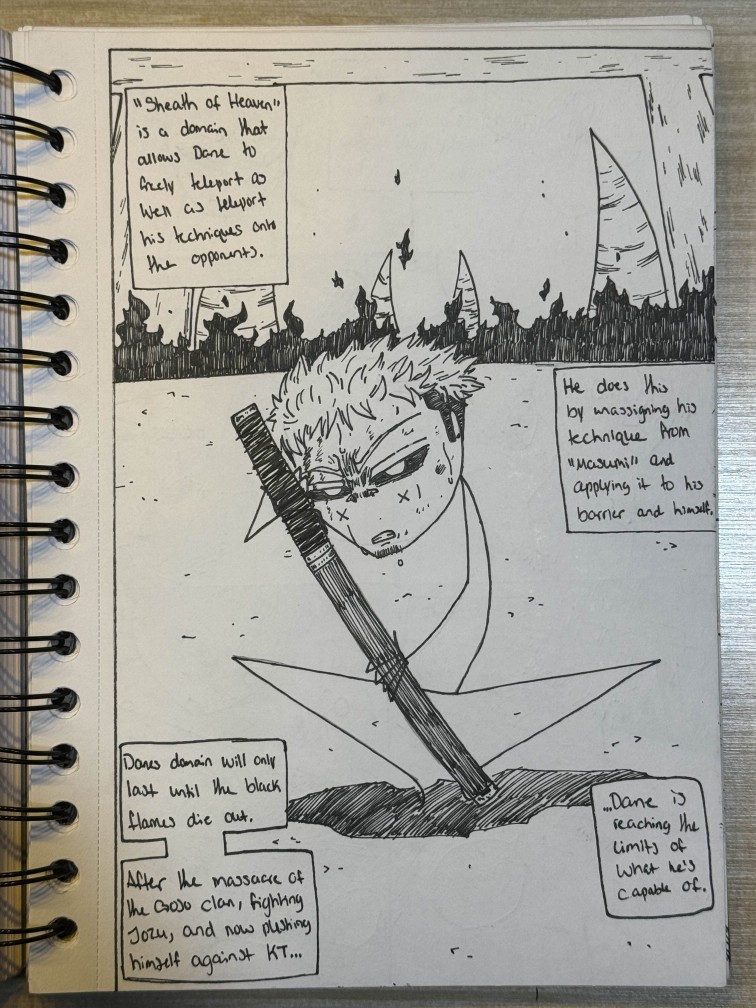 "Sheath of Heaven"
is a domain that
allows Dane to
freely teleport as
well as teleport
his techniques onto
the opponents.
He does this
by unassigning his
technique from
"Masumi" and
applying it to his
barrier and himself.
Danes domain will only
last until the black
flames die out.
After the massacre of
the Gojo clan, fighting
Jozu, and now pushing
himself against KT...
...Dane is
reaching the
limits of
what he's
capable of.